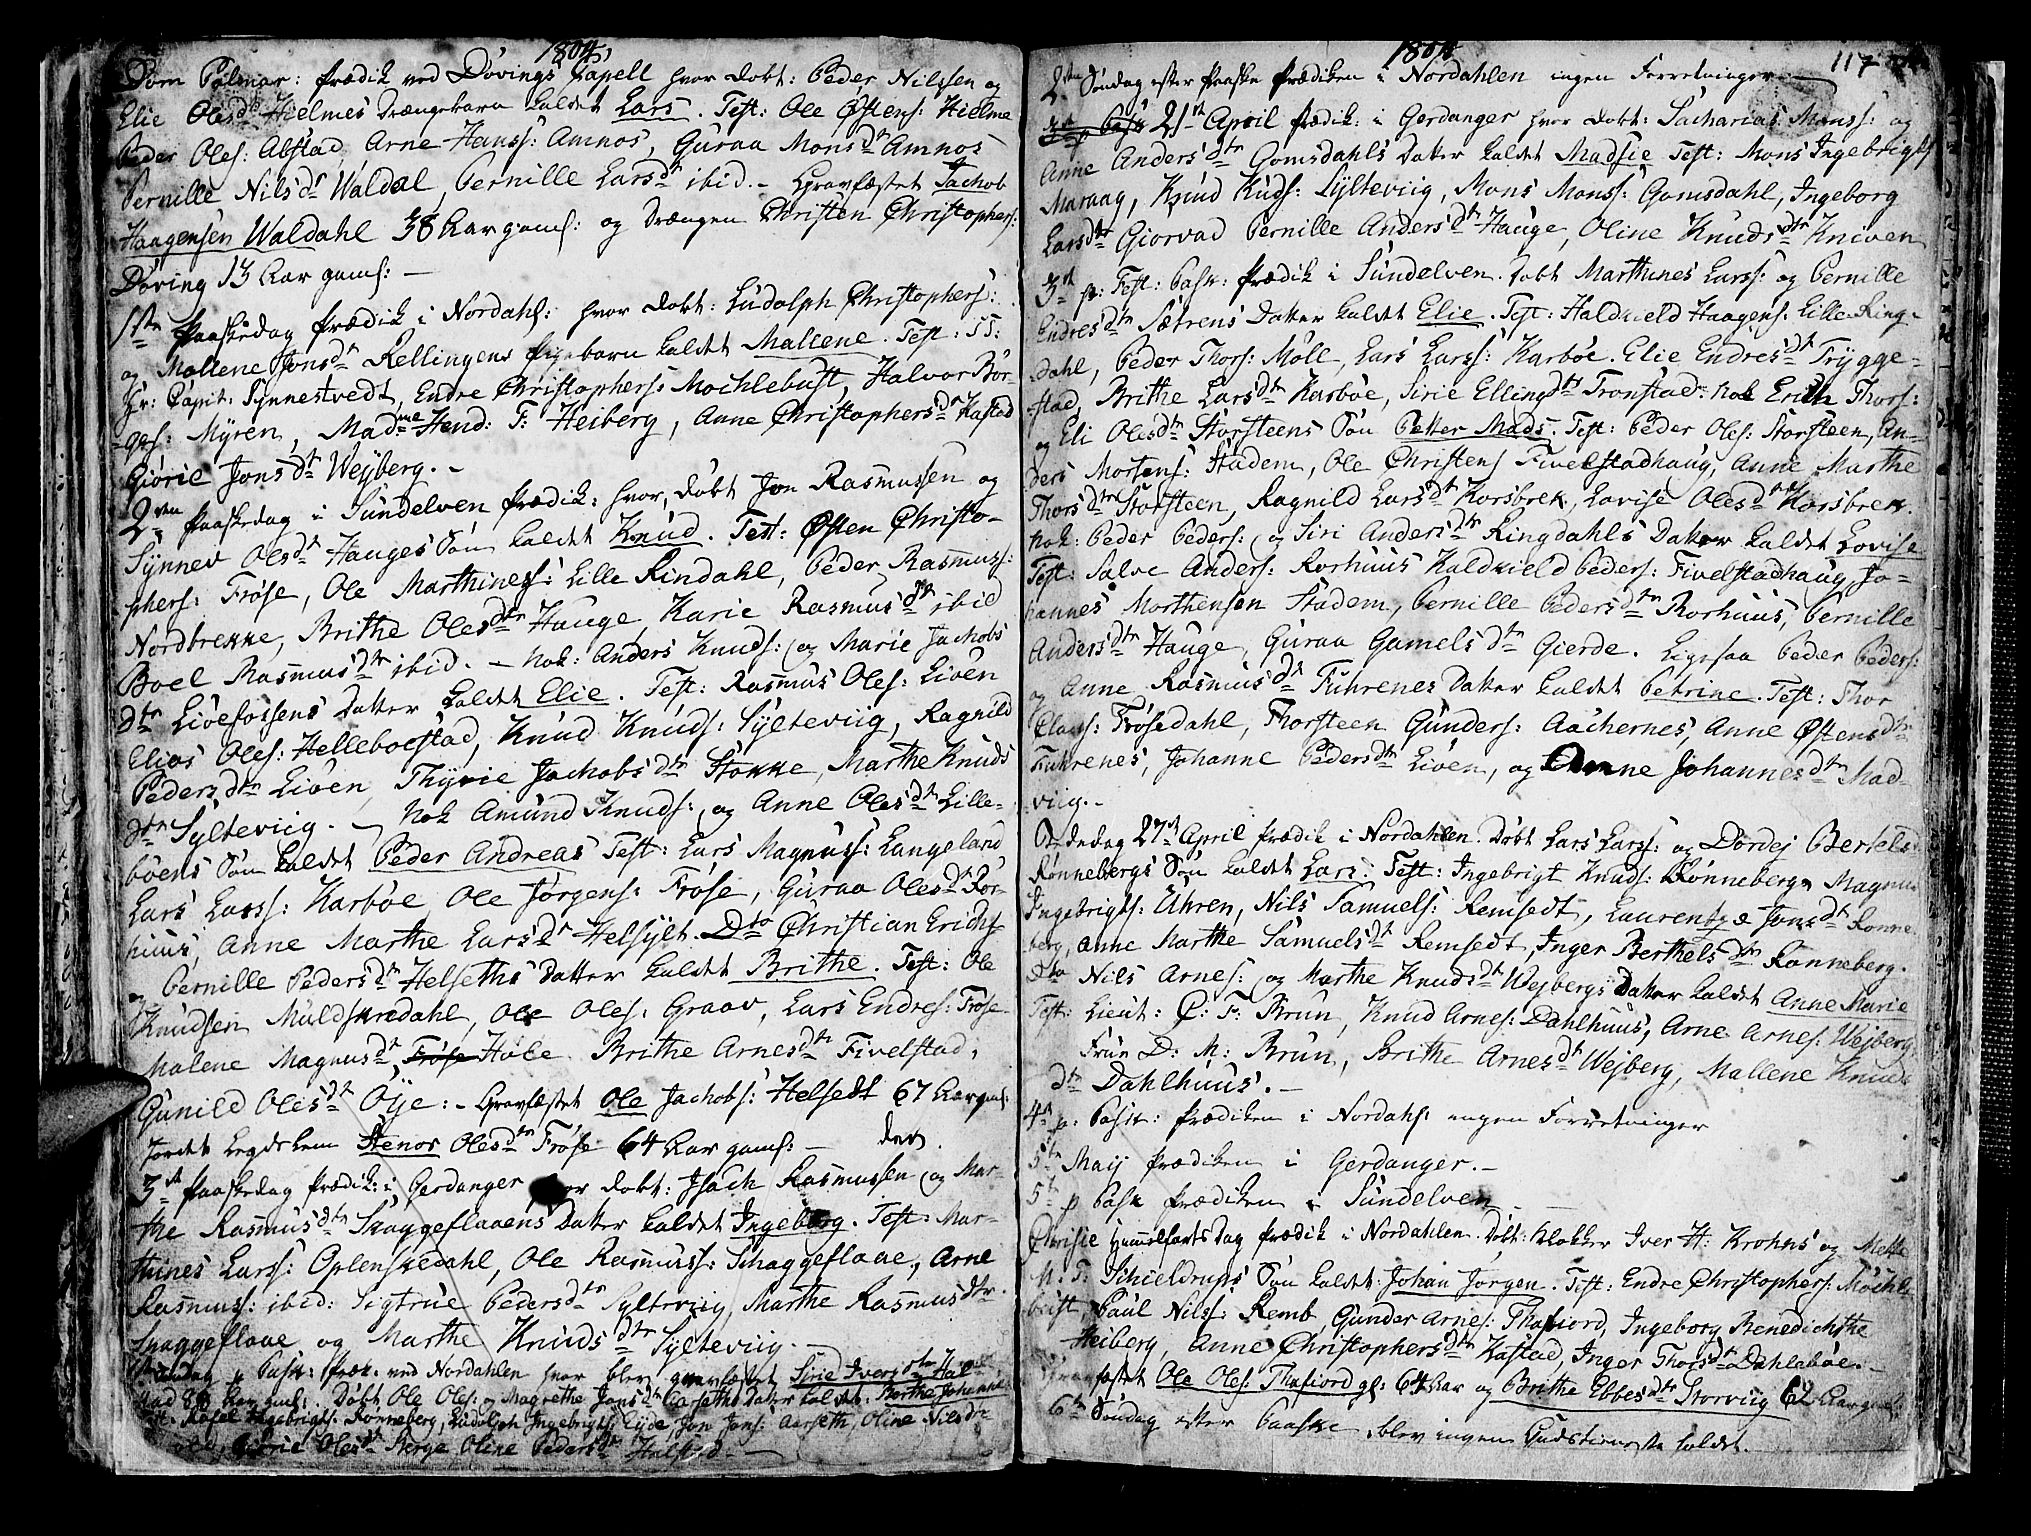 1804
Dom Palmar: Prædik ved Døvings Capell hvor Døbt: Peder Nilsen og
Elie Olesdr Hielmes Drængebarn kaldet Lars. Test: Ole Østens: Hielme
Peder Oles: Alstad, Arne Hanss: Amnos, Guraa Monsdr Amnos
Pernille Nilsdr Waldal, Pernille Larsdr ibid. - Gravfæstet Jachob
Haagensen Waldahl 38 Aar gaml: og Drængen Christen Christophers:
Døving 13 Aar gaml: -
1ste Paaskedag Prædik i Nordahl: hvor Døbt: Ludolph Christophers:
og Mallene Jonsdr Rellingens Pigebarn kaldet Mallene. Test: SS:
Hr: Capit: Synnestvedt, Endre Christophers: Mochlebust, Halvor Bør-
ges: Myren, Madme Hend: F: Heiberg, Anne Christophersdr Kastad
Giørie Jonsdr Wejberg. -
2den Paaskedag i Sundelven Prædik: hvor Døbt Jon Rasmussen og
Synnev Olesdr Hauges Søn kaldet Knud. Test: Østen Christo-
phers: Frøse, Ole Marthiness: Lille Rindahl, Peder Rasmuss:
Nordbrekke, Brithe Olesdtr Hauge, Karie Rasmusdtr ibid
Boel Rasmusdtr ibid. - Nok: Anders Knuds: og Marie Jachobs
dtr Livefossens Datter kaldet Elie. Test: Rasmus Oles: Liven
Elias Oles: Helleboestad, Knud Knuds: Sylteviig, Ragnild
Pedersdtr Liven, Thyrie Jachobsdtr Stokke, Marthe Knuds
dtr Sylteviig. - Nok Amund Knuds: og Anne Olesdtr Lille-
bøens Søn kaldet Peder Andreas Test: Lars Magnuss: Langeland
Lars Larss: Karbøe Ole Jørgens: Frøse, Guraa Olesdtr Ror-
huus, Anne Marthe Larsdr Helsylt. Dto Christian Erichs:
og Pernille Pedersdtr Helseths Datter kaldet Brithe. Test: Ole
Knudsen Muldskredahl, Ole Oles: Graav, Lars Endres: Frøse
Malene Magnusdt Frøse Hole Brithe Arnesdtr Fivelstad,
Gunild Olesdtr Øye: - Gravfæstet Ole Jachobs: Helsedt 67 Aar gml:
Jordet Legdslem Stenor Olesdtr Frøse 64 Aar gaml: -
3die Paaskedag Prædik: i Gerdanger hvor Døbt: Jsach Rasmussen og Mar-
the Rasmusdtr Skaggeflaaens Datter kaldet Ingeborg. Test: Mar-
thines Larss: Oplenskedahl, Ole Rasmuss: Schaggeflaae, Arne
Rasmuss: ibid: Sigtrue Pedersdtr Sylteviig, Marthe Rasmusdtr
Skaggeflaae og Marthe Knudsdtr Sylteviig. -
1ste Søndag p Pask: Præk: ved Nordahlen hvor blev gravfæstet Sirie Iversdtr
Døbt Ole Oles: og Magrethe Jonsdtr Aarseths Datter kaldet: Berthe Johanne
Ingebrigts: Rønneberg, Ludolph Ingebrigts: Eyde, Jon Jons: Aarseth, Oline Nilsdr
Giørie Olesdtr Berge Oline Pedersdtr Halstad -
1804
117
2den Søndag efter Paaske Prædiken i Nordahlen ingen Forretninger -
21de April Prædik: i Gerdanger hvor Døbt: Sacharias Monss: og
Anne Andersdtr Gomsdahls Datter kaldet Madsie Test: Mons Ingebrigts
Maraag, Knud Kuds: Sylteviig, Mons Monss: Gomsdahl, Ingeborg
Larsdtr Giorvad Pernille Andersdtr Hauge, Oline Knudsdtr Kniven
3die p: Fest: Pask: Prædik i Sundelven. Døbt Marthines Larss: og Pernille
Endresdtr Sætrens Datter kaldet Elie. Test: Haldkield Haagens: Lille Ring-
dahl, Peder Thors: Møll, Lars Larss: Karbøe. Elie Endresdt Trygge-
stad, Brithe Larsdtr Karbøe, Sirie Ellingdtr Tronstad: Nok Erich Thors:
og Eli Olesdtr Storsteens Søn Petter Mads. Test: Peder Oles: Storsteen, An-
ders Mortens: Stadem, Ole Christens Fivelstadhaug, Anne Marthe
Thorsdtr Storsteen, Ragnild Larsdt Korsbrek, Lovise Olesdtr Korsbrek.
Nok: Peder Peders: og Siri Andersdtr Ringdahls Datter kaldet Lovise
Test: Salve Anders: Rorhuus Haldkield Peders: Fivelstadhaug, Jo-
hannes Morthensen Stadem, Pernille Pedersdtr Rorhuus, Pernille
Andersdtr Hauge, Guraa Gamelsdtr Gierde. Ligesaa Peder Peders:
og Anne Rasmusdt Fuhrenes Datter kaldet Petrine. Test: Thor
Claus: Frøsedahl, Thorsteen Gunders: Aachernes, Anne Østensdtr
Fuhrenes, Johanne Pedersdtr Liven, og Anne Johannesdtr Mad-
viig. -
Onsdag 27de April Prædik i Nordahlen. Døbt Lars Larss: og Dordej Bertels
Rønnebergs Søn kaldet Lars: Test: Ingebrigt Knuds: Rønneberg, Magnus
Ingebrigts: Uhren, Nils Samuels: Remsedt, Laurentze Jonsdt Rønne-
berg, Anne Marthe Samuelsdt Remsedt, Inger Berthelsdtr Rønneberg.
Dto Nils Arnes: og Marthe Knudsdt Wejbergs Datter kaldet Anne Marie
Test: Lieut: C: F: Brun, Knud Arnes: Dahlhuus, Arne Arnes: Wejberg
Frue D: M: Brun, Brithe Arnesdt Wejberg, Mallene Knuds
dtr Dahlhuus. -
4de p: Pask: Prædiken i Nordahl: ingen Forretninger
5te Maij Prædiken i Gerdanger. -
5te p Pask Prædiken i Sundelven
Christie Himmelfarts Dag Prædik i Nordahlen. Døbt: Klokker Iver H: Krohns og Mette
M: F: Schieldrups Søn kaldet: Johan Jørgen. Test: Endre Christophers: Møchle
bust, Paul Nilss: Remb, Gunder Arnes: Thafiord, Ingeborg Benedichthe
Heiberg, Anne Christophersdtr Kastad, Inger Thorsdtr Dahlebøe. -
Gravfæstet Ole Oles: Thafiord gl: 64 Aar og Brithe Ebbesdtr Storviig 62 Aar gml:
6te Søndag efter Paaske blev ingen Gudstieneste holdet.